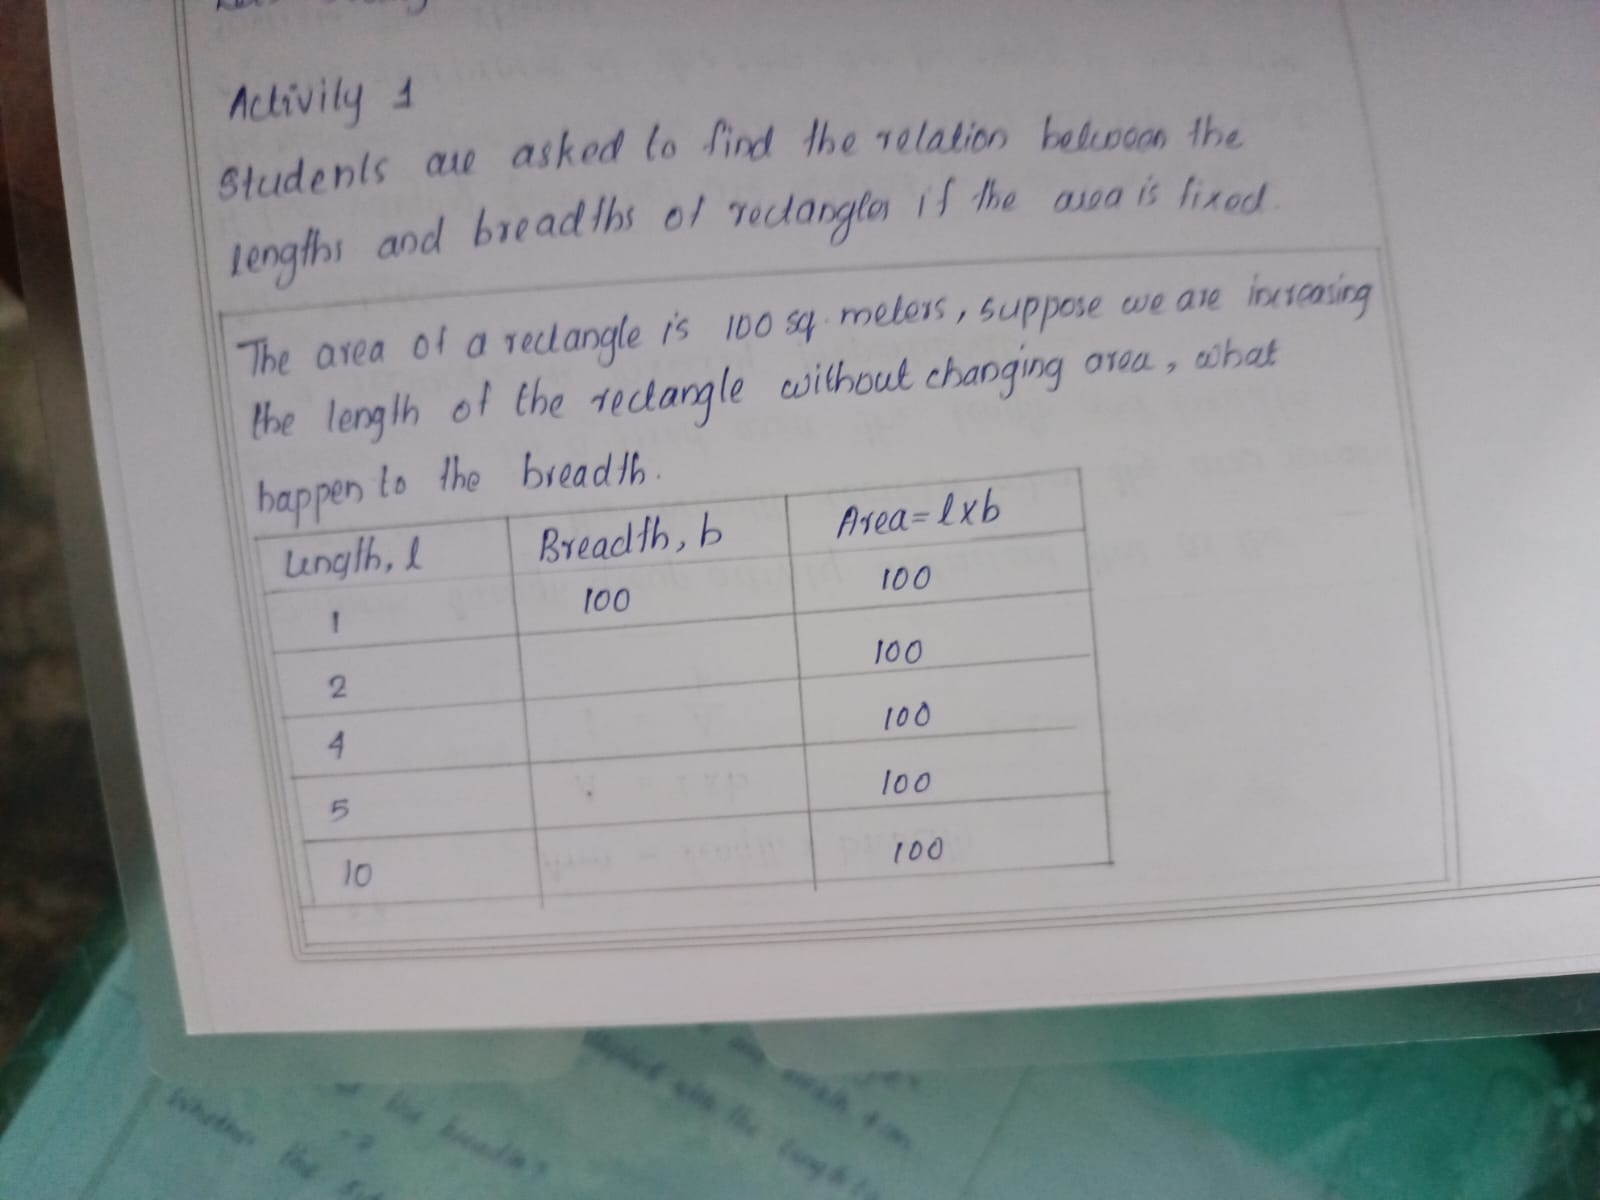 Activity 1
Students are asked to find the relation between the
lengths and breadths of rectangles if the area is fixed.
The area of a rectangle is 100 sq. meters, suppose we are increasing
the length of the rectangle without changing area, what
happen to the breadth.
Length, l Breadth, b Area=lxb
1 100 100
2 100
4 100
5 100
10 100
the breadth
Whether the